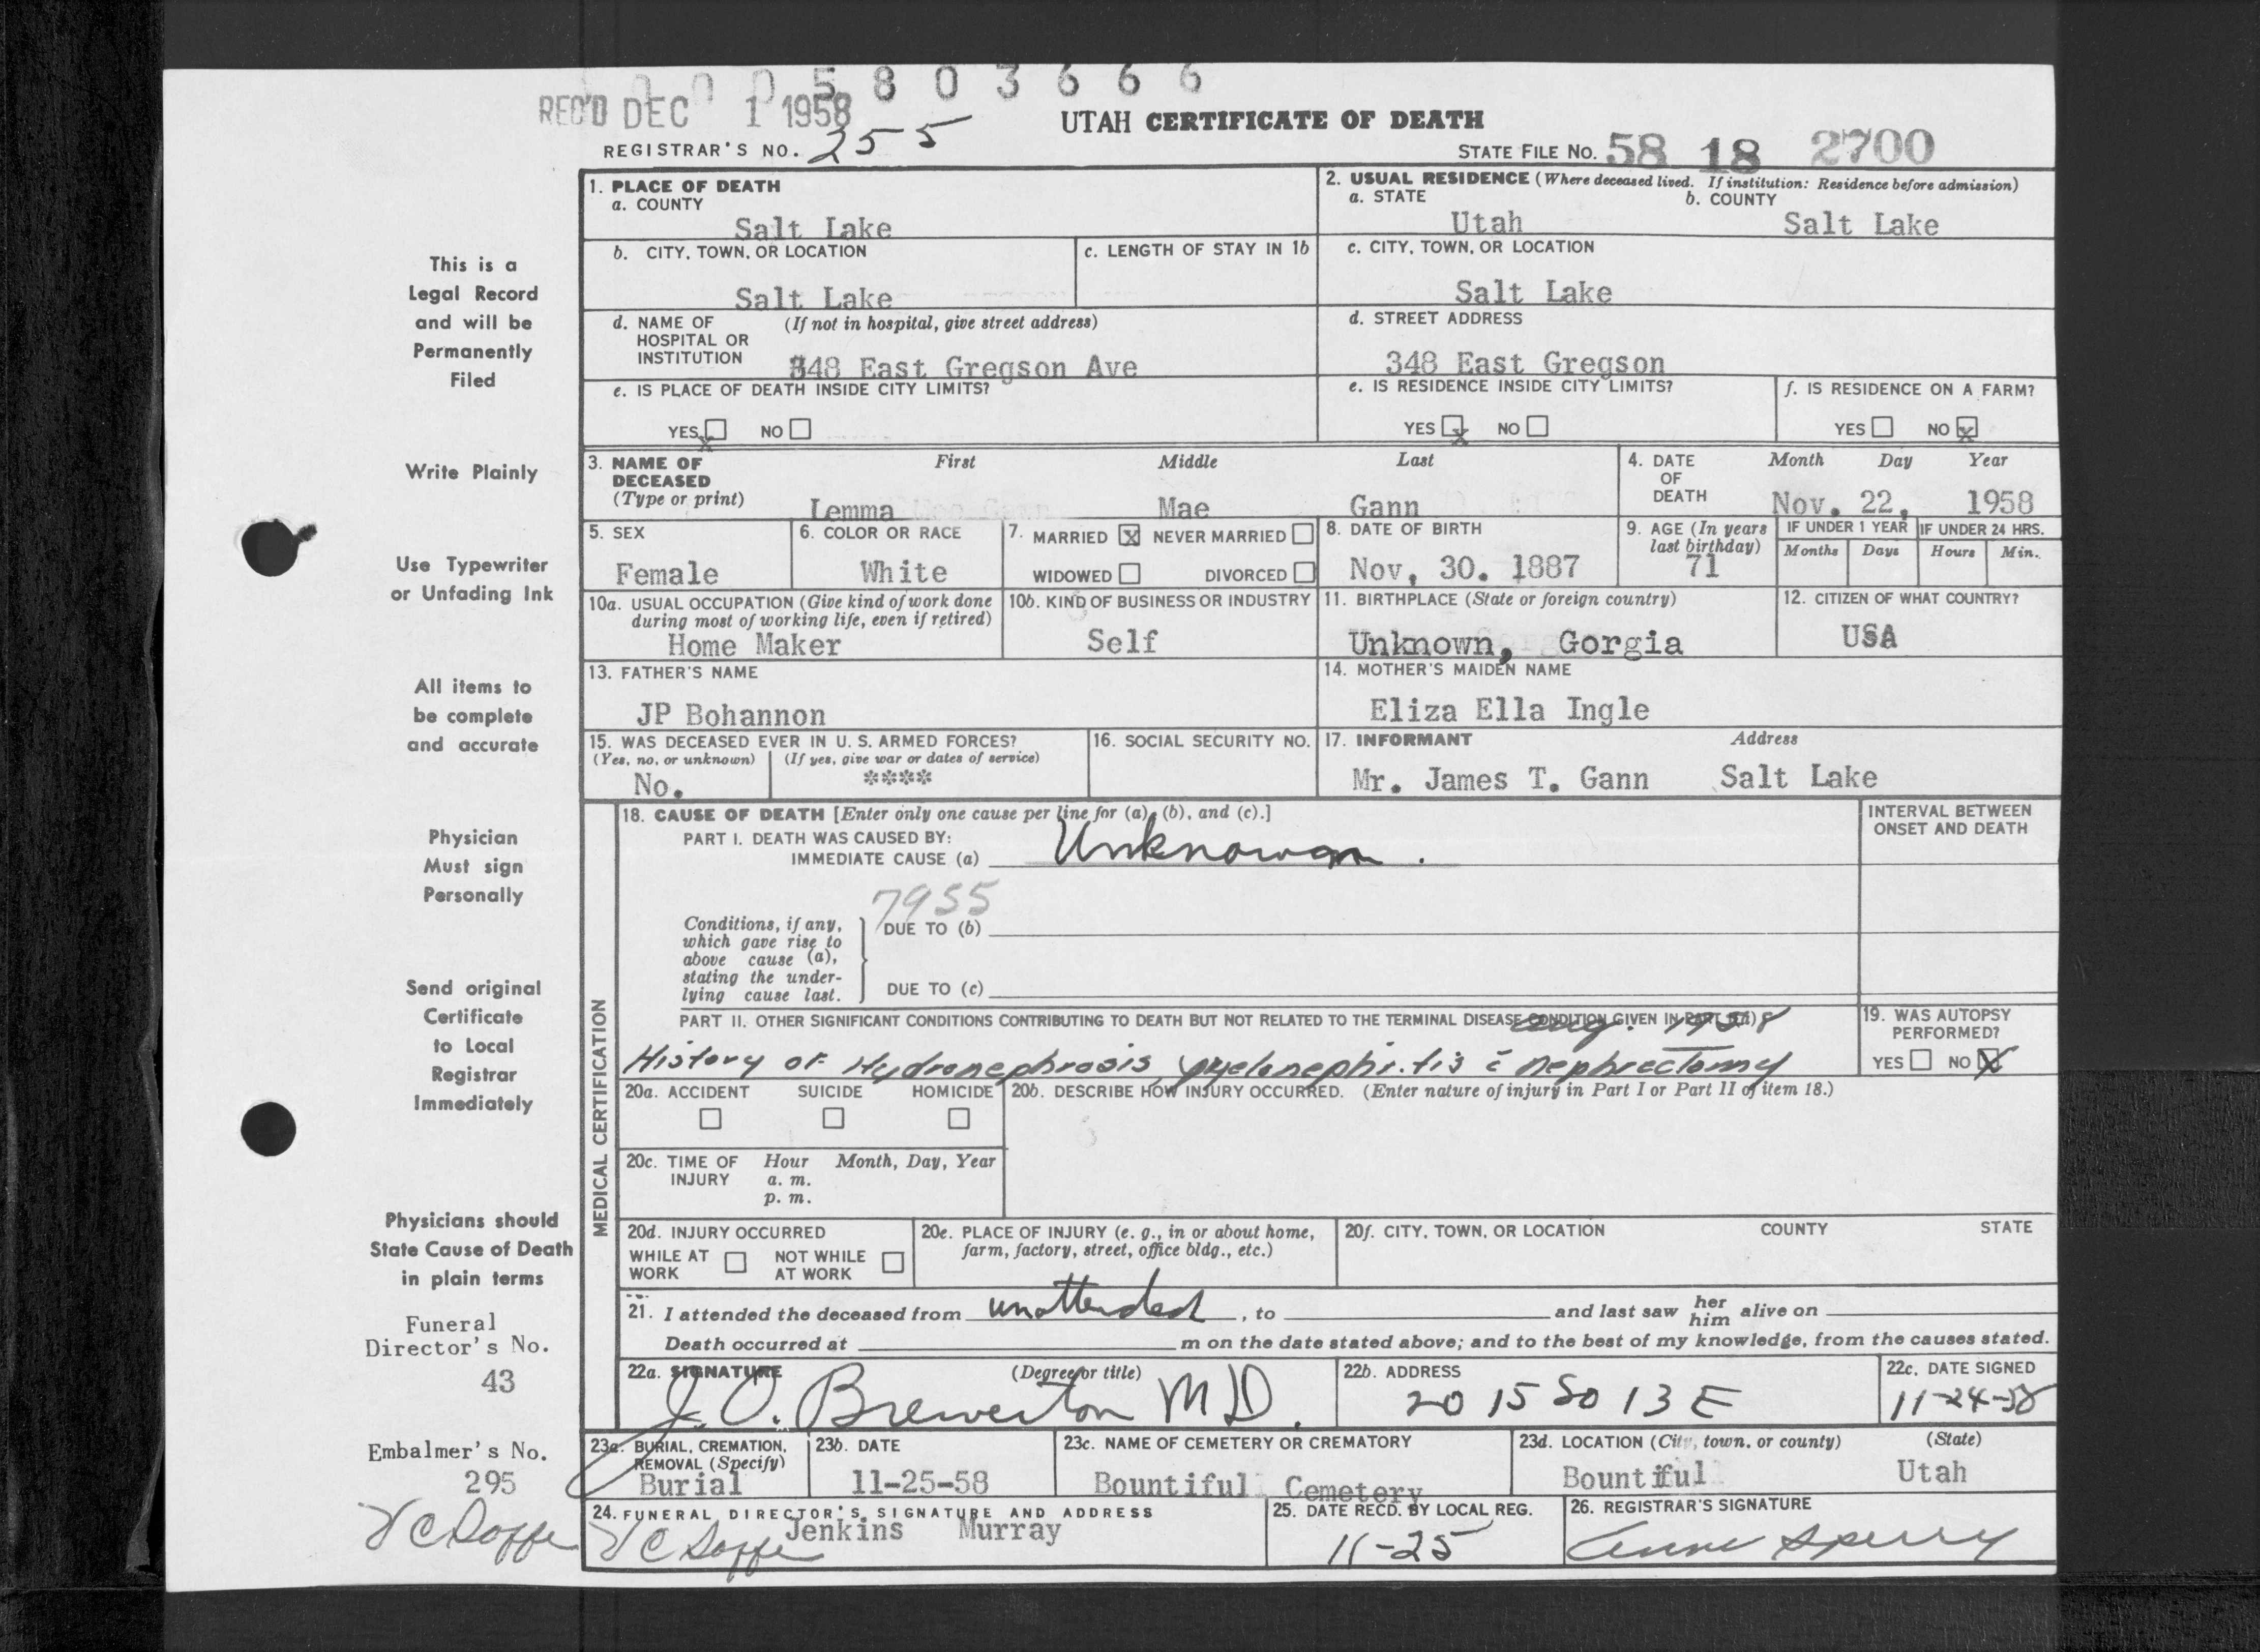 0 0 0 5 8 0 3 6 6 6
REC'D DEC 1 1958
UTAH CERTIFICATE OF DEATH
REGISTRAR'S NO. 255
STATE FILE NO. 58 18 2700
1. PLACE OF DEATH
a. COUNTY
Salt Lake
2. USUAL RESIDENCE (Where deceased lived. If institution: Residence before admission)
a. STATE b. COUNTY
Utah Salt Lake
b. CITY, TOWN, OR LOCATION
Salt Lake
c. LENGTH OF STAY IN 1b
c. CITY, TOWN, OR LOCATION
Salt Lake
d. NAME OF (If not in hospital, give street address)
HOSPITAL OR
INSTITUTION 348 East Gregson Ave
d. STREET ADDRESS
348 East Gregson
e. IS PLACE OF DEATH INSIDE CITY LIMITS?
YES x NO
e. IS RESIDENCE INSIDE CITY LIMITS?
YES x NO
f. IS RESIDENCE ON A FARM?
YES NO x
3. NAME OF DECEASED (Type or print)
First Middle Last
Lemma Mae Gann
4. DATE OF DEATH
Month Day Year
Nov. 22, 1958
5. SEX
Female
6. COLOR OR RACE
White
7. MARRIED X NEVER MARRIED
WIDOWED DIVORCED
8. DATE OF BIRTH
Nov, 30. 1887
9. AGE (In years last birthday)
71
IF UNDER 1 YEAR
Months Days
IF UNDER 24 HRS.
Hours Min.
10a. USUAL OCCUPATION (Give kind of work done
during most of working life, even if retired)
Home Maker
10b. KIND OF BUSINESS OR INDUSTRY
Self
11. BIRTHPLACE (State or foreign country)
Unknown, Gorgia
12. CITIZEN OF WHAT COUNTRY?
USA
13. FATHER'S NAME
JP Bohannon
14. MOTHER'S MAIDEN NAME
Eliza Ella Ingle
15. WAS DECEASED EVER IN U. S. ARMED FORCES?
(Yes, no, or unknown) (If yes, give war or dates of service)
No. ****
16. SOCIAL SECURITY NO.
17. INFORMANT Address
Mr. James T. Gann Salt Lake
MEDICAL CERTIFICATION
18. CAUSE OF DEATH [Enter only one cause per line for (a), (b), and (c).]
PART I. DEATH WAS CAUSED BY:
IMMEDIATE CAUSE (a) Unknown.
INTERVAL BETWEEN
ONSET AND DEATH
7955
Conditions, if any,
which gave rise to
above cause (a),
stating the under-
lying cause last.
DUE TO (b)
DUE TO (c)
PART II. OTHER SIGNIFICANT CONDITIONS CONTRIBUTING TO DEATH BUT NOT RELATED TO THE TERMINAL DISEASE CONDITION GIVEN IN PART I(a)
Aug. 1958
History of Hydronephrosis, pyelonephritis c̄ nephrectomy
19. WAS AUTOPSY
PERFORMED?
YES NO X
20a. ACCIDENT SUICIDE HOMICIDE
20b. DESCRIBE HOW INJURY OCCURRED. (Enter nature of injury in Part I or Part II of item 18.)
20c. TIME OF INJURY
Hour Month, Day, Year
a. m.
p. m.
20d. INJURY OCCURRED
WHILE AT WORK NOT WHILE AT WORK
20e. PLACE OF INJURY (e. g., in or about home,
farm, factory, street, office bldg., etc.)
20f. CITY, TOWN, OR LOCATION COUNTY STATE
21. I attended the deceased from unattended, to and last saw her him alive on
Death occurred at m on the date stated above; and to the best of my knowledge, from the causes stated.
22a. SIGNATURE (Degree or title)
J. O. Brewerton MD.
22b. ADDRESS
2015 So 13 E
22c. DATE SIGNED
11-24-58
23a. BURIAL, CREMATION,
REMOVAL (Specify)
Burial
23b. DATE
11-25-58
23c. NAME OF CEMETERY OR CREMATORY
Bountiful Cemetery
23d. LOCATION (City, town, or county) (State)
Bountiful Utah
24. FUNERAL DIRECTOR'S SIGNATURE AND ADDRESS
Jenkins Murray
25. DATE RECD. BY LOCAL REG.
11-25
26. REGISTRAR'S SIGNATURE
Anne Sperry
This is a
Legal Record
and will be
Permanently
Filed
Write Plainly
Use Typewriter
or Unfading Ink
All items to
be complete
and accurate
Physician
Must sign
Personally
Send original
Certificate
to Local
Registrar
Immediately
Physicians should
State Cause of Death
in plain terms
Funeral
Director's No.
43
Embalmer's No.
295